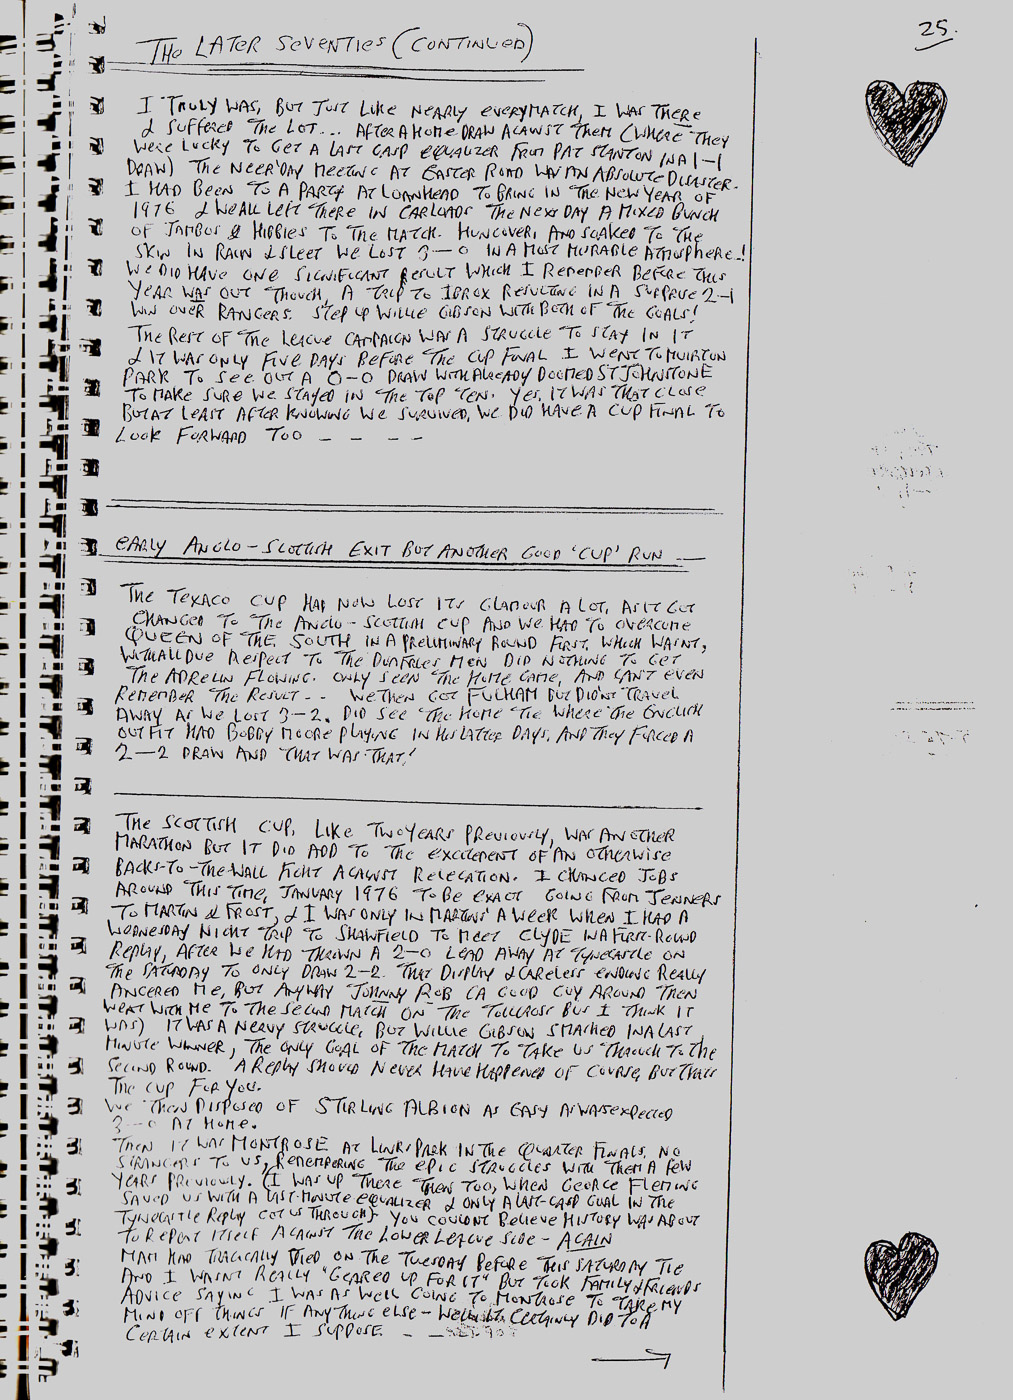 25.
THE LATER SEVENTIES (CONTINUED)
I TRULY WAS, BUT JUST LIKE NEARLY EVERY MATCH, I WAS THERE
& SUFFERED THE LOT... AFTER A HOME DRAW AGAINST THEM (WHERE THEY
WERE LUCKY TO GET A LAST GASP EQUALIZER FROM PAT STANTON IN A 1-1
DRAW) THE NEER'DAY MEETING AT EASTER ROAD WAS AN ABSOLUTE DISASTER.
I HAD BEEN TO A PARTY AT LOANHEAD TO BRING IN THE NEW YEAR OF
1976 & WE ALL LEFT THERE IN CARLOADS THE NEXT DAY A MIXED BUNCH
OF JAMBOS & HIBBIES TO THE MATCH. HUNGOVER, AND SOAKED TO THE
SKIN IN RAIN & SLEET WE LOST 3-0 IN A MOST MURABLE ATMOSPHERE..!
WE DID HAVE ONE SIGNIFICANT RESULT WHICH I REMEMBER BEFORE THIS
YEAR WAS OUT THOUGH, A TRIP TO IBROX RESULTING IN A SUPRISE 2-1
WIN OVER RANGERS. STEP UP WILLIE GIBSON WITH BOTH OF THE GOALS!
THE REST OF THE LEAGUE CAMPAIGN WAS A STRUGGLE TO STAY IN IT
& IT WAS ONLY FIVE DAYS BEFORE THE CUP FINAL I WENT TO MUIRTON
PARK TO SEE OUT A 0-0 DRAW WITH ALREADY DOOMED ST JOHNSTONE
TO MAKE SURE WE STAYED IN THE TOP TEN. YES, IT WAS THAT CLOSE
BUT AT LEAST AFTER KNOWING WE SURVIVED, WE DID HAVE A CUP FINAL TO
LOOK FORWARD TOO - - - -
EARLY ANGLO-SCOTTISH EXIT BUT ANOTHER GOOD 'CUP' RUN —
THE TEXACO CUP HAD NOW LOST ITS GLAMOUR A LOT, AS IT GOT
CHANGED TO THE ANGLO-SCOTTISH CUP AND WE HAD TO OVERCOME
QUEEN OF THE SOUTH IN A PRELIMINARY ROUND FIRST, WHICH WASNT,
WITH ALL DUE RESPECT TO THE DUMFRIES MEN DID NOTHING TO GET
THE ADRELIN FLOWING. ONLY SEEN THE HOME GAME, AND CAN'T EVEN
REMEMBER THE RESULT-- WE THEN GOT FULHAM BUT DIDN'T TRAVEL
AWAY AS WE LOST 3-2. DID SEE THE HOME TIE WHERE THE ENGLISH
OUTFIT HAD BOBBY MOORE PLAYING IN HIS LATTER DAYS, AND THEY FORCED A
2-2 DRAW AND THAT WAS THAT!
THE SCOTTISH CUP, LIKE TWO YEARS PREVIOUSLY, WAS ANOTHER
MARATHON BUT IT DID ADD TO THE EXCITEMENT OF AN OTHERWISE
BACKS-TO-THE-WALL FIGHT AGAINST RELEGATION. I CHANGED JOBS
AROUND THIS TIME, JANUARY 1976 TO BE EXACT GOING FROM JENNERS
TO MARTIN & FROST, & I WAS ONLY IN MARTINS' A WEEK WHEN I HAD A
WEDNESDAY NIGHT TRIP TO SHAWFIELD TO MEET CLYDE IN A FIRST-ROUND
REPLAY, AFTER WE HAD THROWN A 2-0 LEAD AWAY AT TYNECASTLE ON
THE SATURDAY TO ONLY DRAW 2-2. THAT DISPLAY & CARELESS ENDING REALLY
ANGERED ME, BUT ANYWAY JOHNNY ROB (A GOOD GUY AROUND THEN
WENT WITH ME TO THE SECOND MATCH ON THE TOLLCROSS BUS I THINK IT
WAS) IT WAS A NERVY STRUGGLE, BUT WILLIE GIBSON SMASHED IN A LAST
MINUTE WINNER, THE ONLY GOAL OF THE MATCH TO TAKE US THROUGH TO THE
SECOND ROUND. A REPLAY SHOULD NEVER HAVE HAPPENED OF COURSE, BUT THATS
THE CUP FOR YOU.
WE THEN DISPOSED OF STIRLING ALBION AS EASY AS WAS EXPECTED
3-0 AT HOME.
THEN IT WAS MONTROSE AT LINKS PARK IN THE QUARTER FINALS. NO
STRANGERS TO US, REMEMBERING THE EPIC STRUGGLES WITH THEM A FEW
YEARS PREVIOUSLY. (I WAS UP THERE THEN TOO, WHEN GEORGE FLEMING
SAVED US WITH A LAST-MINUTE EQUALIZER & ONLY A LAST-GASP GOAL IN THE
TYNECASTLE REPLAY GOT US THROUGH) YOU COULDN'T BELIEVE HISTORY WAS ABOUT
TO REPEAT ITSELF AGAINST THE LOWER LEAGUE SIDE - AGAIN
MAM HAD TRAGICALLY DIED ON THE TUESDAY BEFORE THIS SATURDAY TIE
AND I WASN'T REALLY "GEARED UP FOR IT" BUT TOOK FAMILY & FRIENDS
ADVICE SAYING I WAS AS WELL GOING TO MONTROSE TO TAKE MY
MIND OFF THINGS IF ANYTHING ELSE - WELL IT CERTAINLY DID TO A
CERTAIN EXTENT I SUPPOSE - -